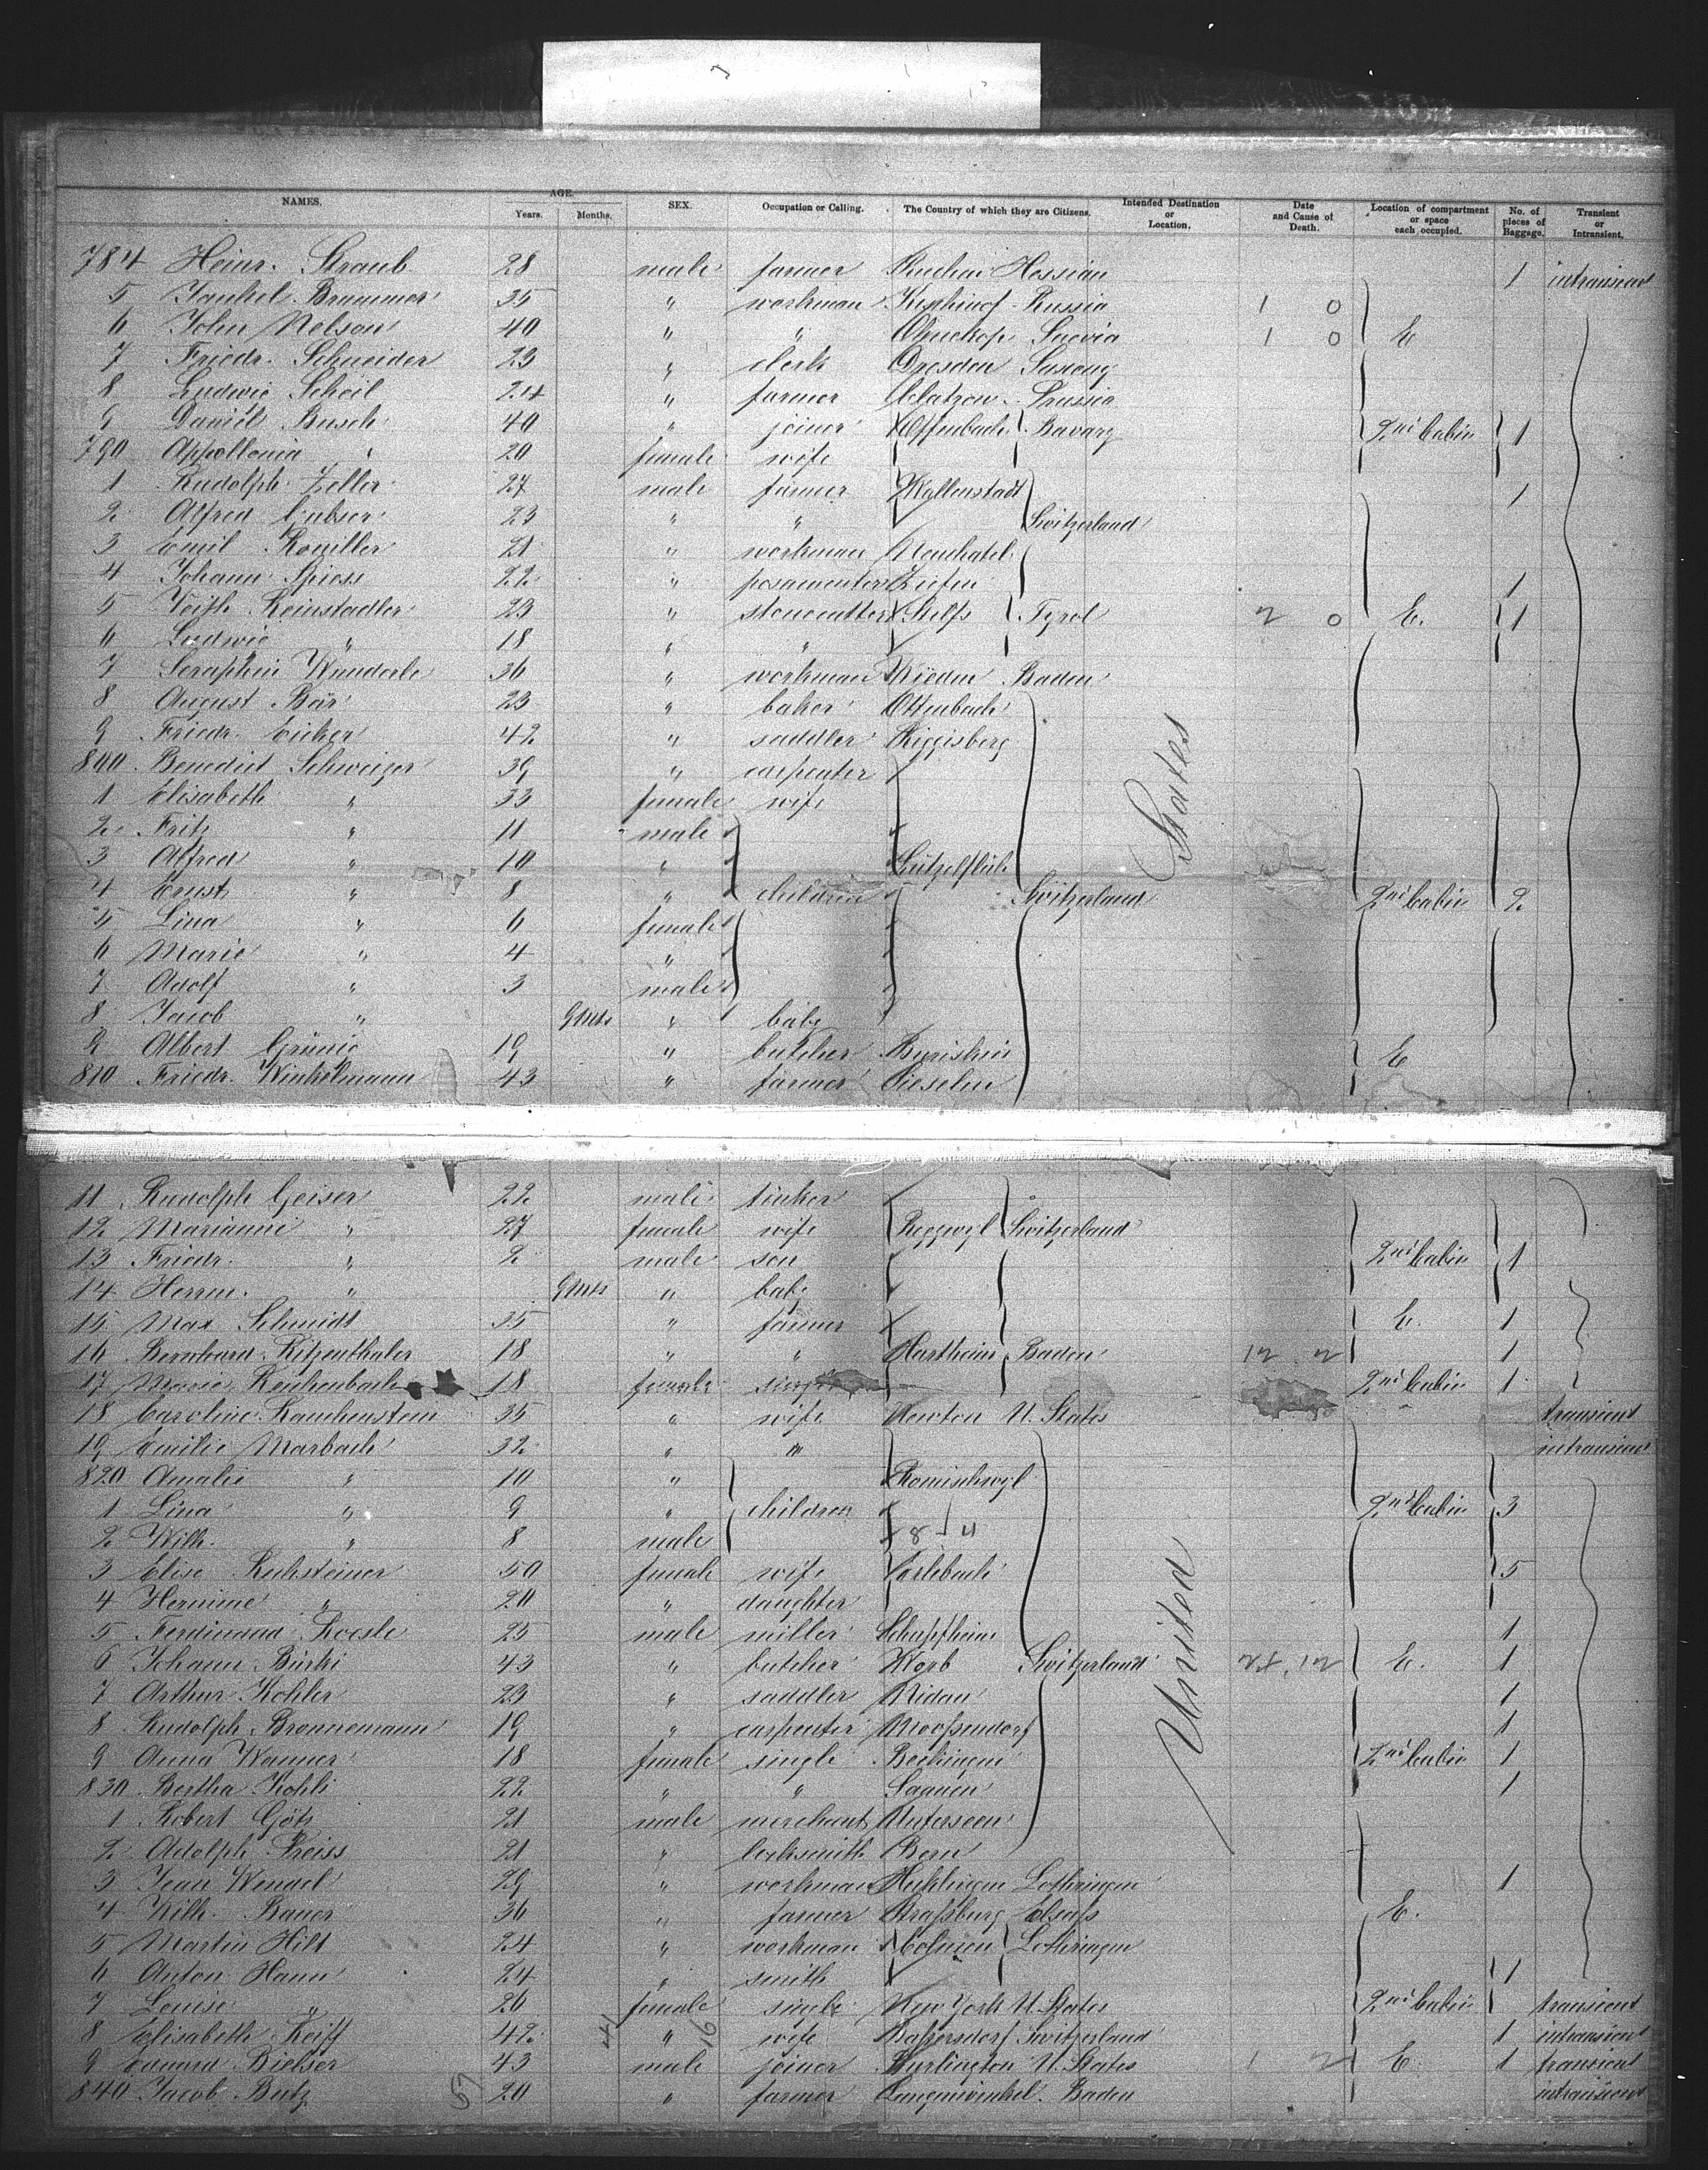 NAMES. AGE. Years. Months. SEX. Occupation or Calling. The Country of which they are Citizens. Intended Destination or Location. Date and Cause of Death. Location of compartment or space each occupied. No. of pieces of Baggage. Transient or Intransient.
784 Heinr. Straub 28 male farmer Hessian 1 intransient
5 Jankel Brummer 35 " workman Russia 1 0
6 John Nelson 40 " " Suevia 1 0 E
7 Friedr. Schneider 23 " clerk Dresden Saxony
8 Ludwig Scheil 24 " farmer Prussia
9 Daniel Busch 40 " joiner Offenbach Bavary 2nd Cabin 1
790 Appollonia " 20 female wife
1 Rudolph Zeller 27 male farmer Wallenstadt 1
2 Alfred Gubser 23 " " Switzerland
3 Emil Rouiller 21 " workman Neuchatel
4 Johann Spiess 22 " posamenter Ziefen 1
5 Veith Reinstadler 23 " stonecutter Stelfs Tyrol 2 0 E. 1
6 Ludwig " 18 " "
7 Seraphin Wunderle 36 " workman Wieden Baden
8 August Bär 23 " baker Ottenbach
9 Friedr. Eicher 42 " saddler Riggisberg
800 Benedict Schweizer 39 " carpenter
1 Elisabeth " 33 female wife
2 Fritz " 11 male
3 Alfred " 10 " Lützelflüh
4 Ernst " 8 " children Switzerland 2nd Cabin 2
5 Lina " 6 female
6 Marie " 4 "
7 Adolf " 3 male
8 Jacob " 9 Mts " baby
9 Albert Grünig 19 " butcher E
810 Friedr. Winkelmann 43 " farmer Sieselen
States
11 Rudolph Geiser 22 male tinker
12 Marianne " 27 female wife Roggwyl Switzerland
13 Friedr. " 2 male son 2nd Cabin 1
14 Herm. " 9 Mts " baby
15 Max Schmidt 35 " farmer E. 1
16 Bernhard Ritzenthaler 18 " " Hartheim Baden 12 2 1
17 Marie Reichenbach 18 female 2nd Cabin 1
18 Caroline Rauchenstein 35 " wife Newton U. States transient
19 Emilie Marbach 32 " " intransient
820 Amalie " 10 "
1 Lina " 9 " children 2nd Cabin 3
2 Wilh. " 8 male 8 - 4
3 Elise Ruhsteiner 50 female wife 5
4 Hermine " 20 " daughter
5 Ferdinand Roesle 25 male miller Schupfheim 1
6 Johann Bürki 43 " butcher Worb Switzerland 24, 12 E. 1
7 Arthur Kohler 23 " saddler Nidau 1
8 Rudolph Bronnemann 19 " carpenter 1
9 Anna Wanner 18 female single 2nd Cabin 1
830 Bertha Kohli 22 " " Saanen 1
1 Robert Götz 21 male merchant Unterseen
2 Adolph Preiss 21 " locksmith Bern
3 Jean Wendel 29 " workman Lothringen 1
4 Wilh. Bauer 36 " farmer Straßburg Elsaß E.
5 Martin Hilt 24 " workman Lothringen
6 Anton Hann 24 " smith 1
7 Louise " 26 female single New York U. States 2nd Cabin transient
8 Elisabeth Reiff 42 " wife Baßersdorf Switzerland 1 intransient
9 Eduard Bielser 43 male joiner Burlington U. States 1 2 E. 1 transient
840 Jacob Butz 20 " farmer Langenwinkel Baden intransient
United
16